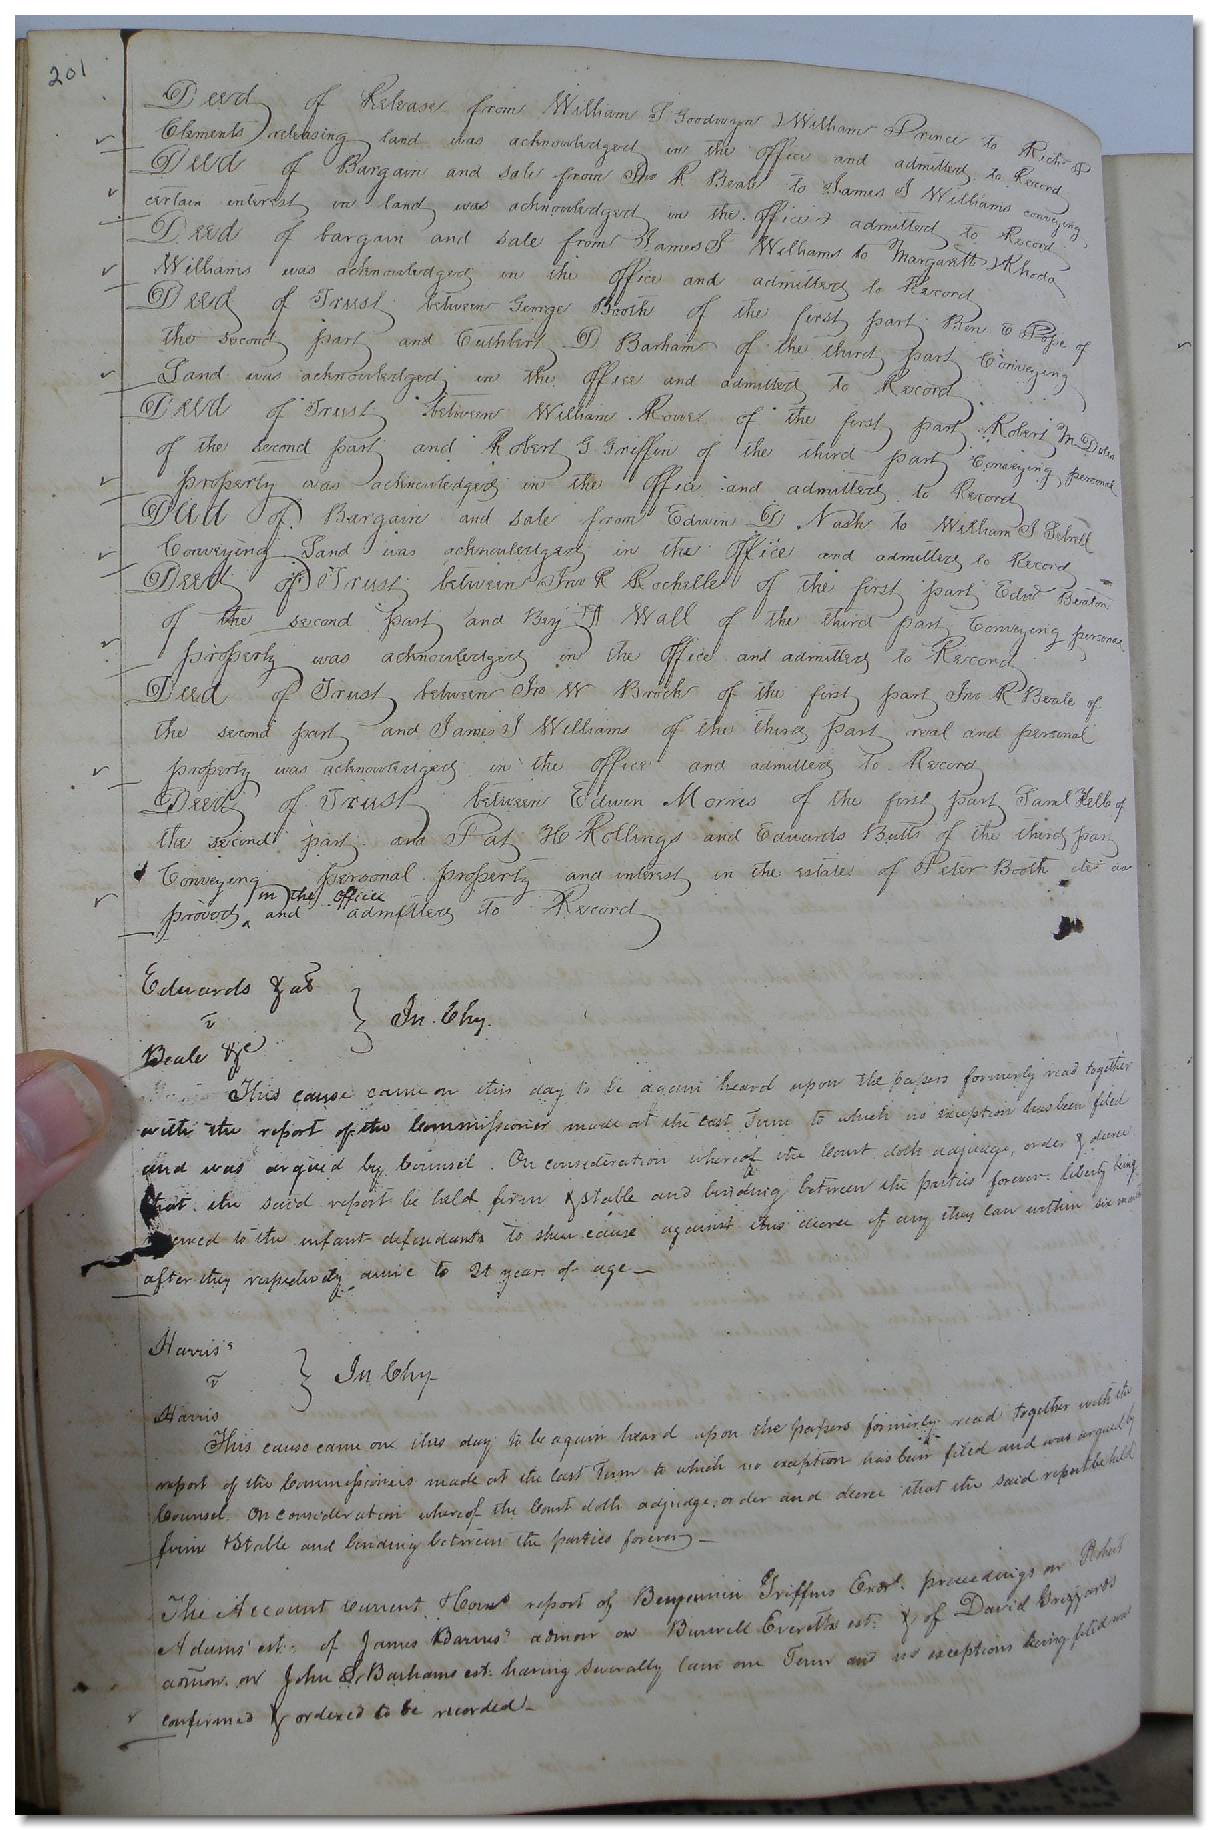 201
Deed of Release from William S Goodwyn & William Prince to Richd
Clements releasing land was acknowledged in the office and admitted to Record
Deed of Bargain and sale from Jno R Beale to James S Williams conveying
certain interest in land was acknowledged in the office & admitted to Record
Deed of bargain and sale from James S Williams to Margarett & Rhoda
Williams was acknowledged in the office and admitted to Record
Deed of Trust between George Booth of the first part Ben E Pope of
the second part and Cuthbert D Barham of the third part Conveying
Land was acknowledged in the office and admitted to Record
Deed of Trust between William of the first part Robert M
of the second part and Robert G Griffin of the third part Conveying personal
property was acknowledged in the office and admitted to Record
Deed of Bargain and sale from Edwin D Nash to William J
Conveying Land was acknowledged in the office and admitted to Record
Deed of Trust between Jno R Rochelle of the first part Edwd Beaton
of the second part and Benj Wall of the third part Conveying personal
property was acknowledged in the office and admitted to Record
Deed of Trust between Jno W Brock of the first part Jno R Beale of
the second part and James S Williams of the third part real and personal
property was acknowledged in the office and admitted to Record
Deed of Trust between Edwin Morris of the first part Saml Kello of
the second part and Pat H Rollings and Edwards Butts of the third part
Conveying personal property and interest in the estate of Peter Booth
in the office
proved and admitted to Record
Edwards & als
v
In Chy.
Beale &c
This cause came on this day to be again heard upon the papers formerly read together
with the report of the Commissioner made at the last Term to which no exception has been filed
and was argued by Counsel. On consideration whereof the Court doth adjudge, order & decree
that the said report be held firm & stable and binding between the parties forever. liberty being
to the infant defendants to shew cause against this decree if any they can within six months
after they respectively arrive to 21 years of age
Harris
v
In Chy
Harris
This cause came on this day to be again heard upon the papers formerly read together with the
report of the Commissioners made at the last Term to which no exception has been filed and was argued by
Counsel. On consideration whereof the Court doth adjudge, order and decree that the said report be held
firm & stable and binding between the parties forever
The Account Current report of Benjamin Griffins Exor. proceedings on Robert
Adams est: of James Barnes admon on Burwell Everetts est: & of David Grizzards
admon. on John S Barhams est: having severally lain one Term and no exceptions being filed
confirmed & ordered to be recorded